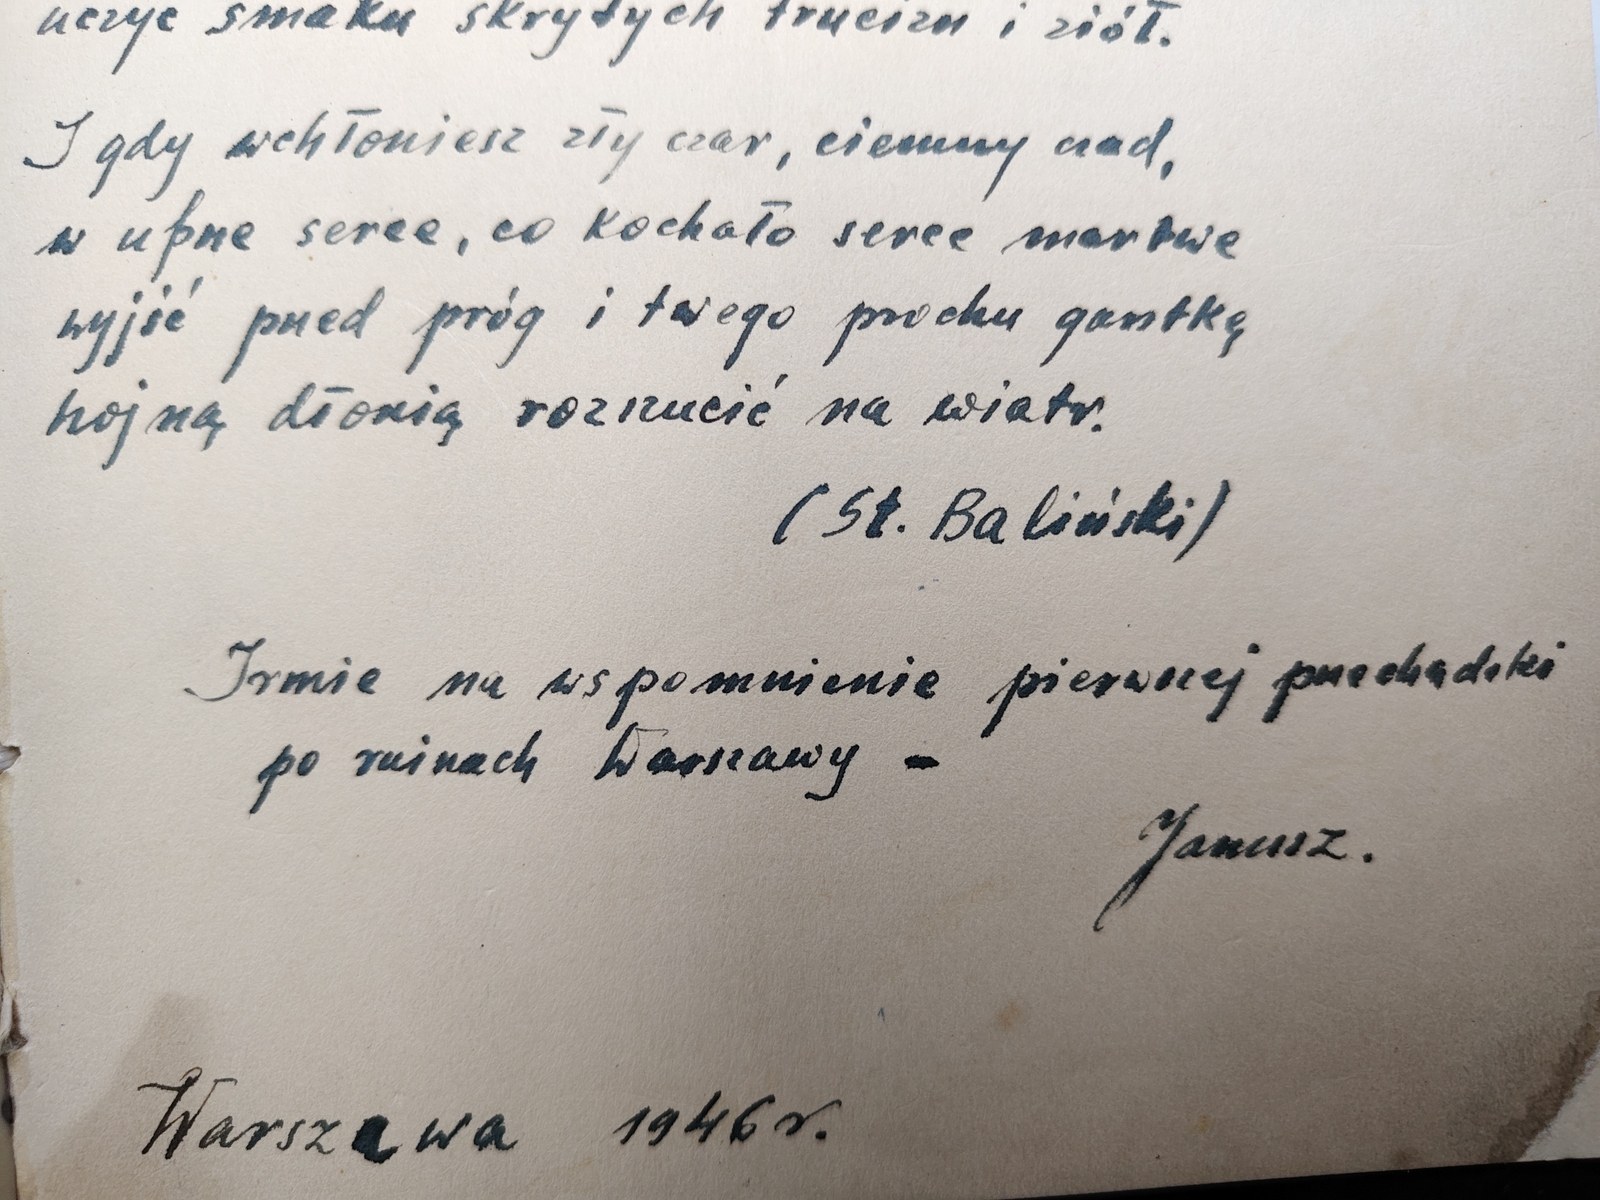 uczyć smaku skrytych trucizn i ziół.
I gdy wchłoniesz zły czar, ciemny czad,
w upne serce, co kochało serce martwe
wyjść przed próg i twego prochu garstkę
hojną dłonią rozrzucić na wiatr.
(St. Baliński)
Irmie na wspomnienie pierwszej przechadzki
po ruinach Warszawy -
Janusz.
Warszawa 1946 r.